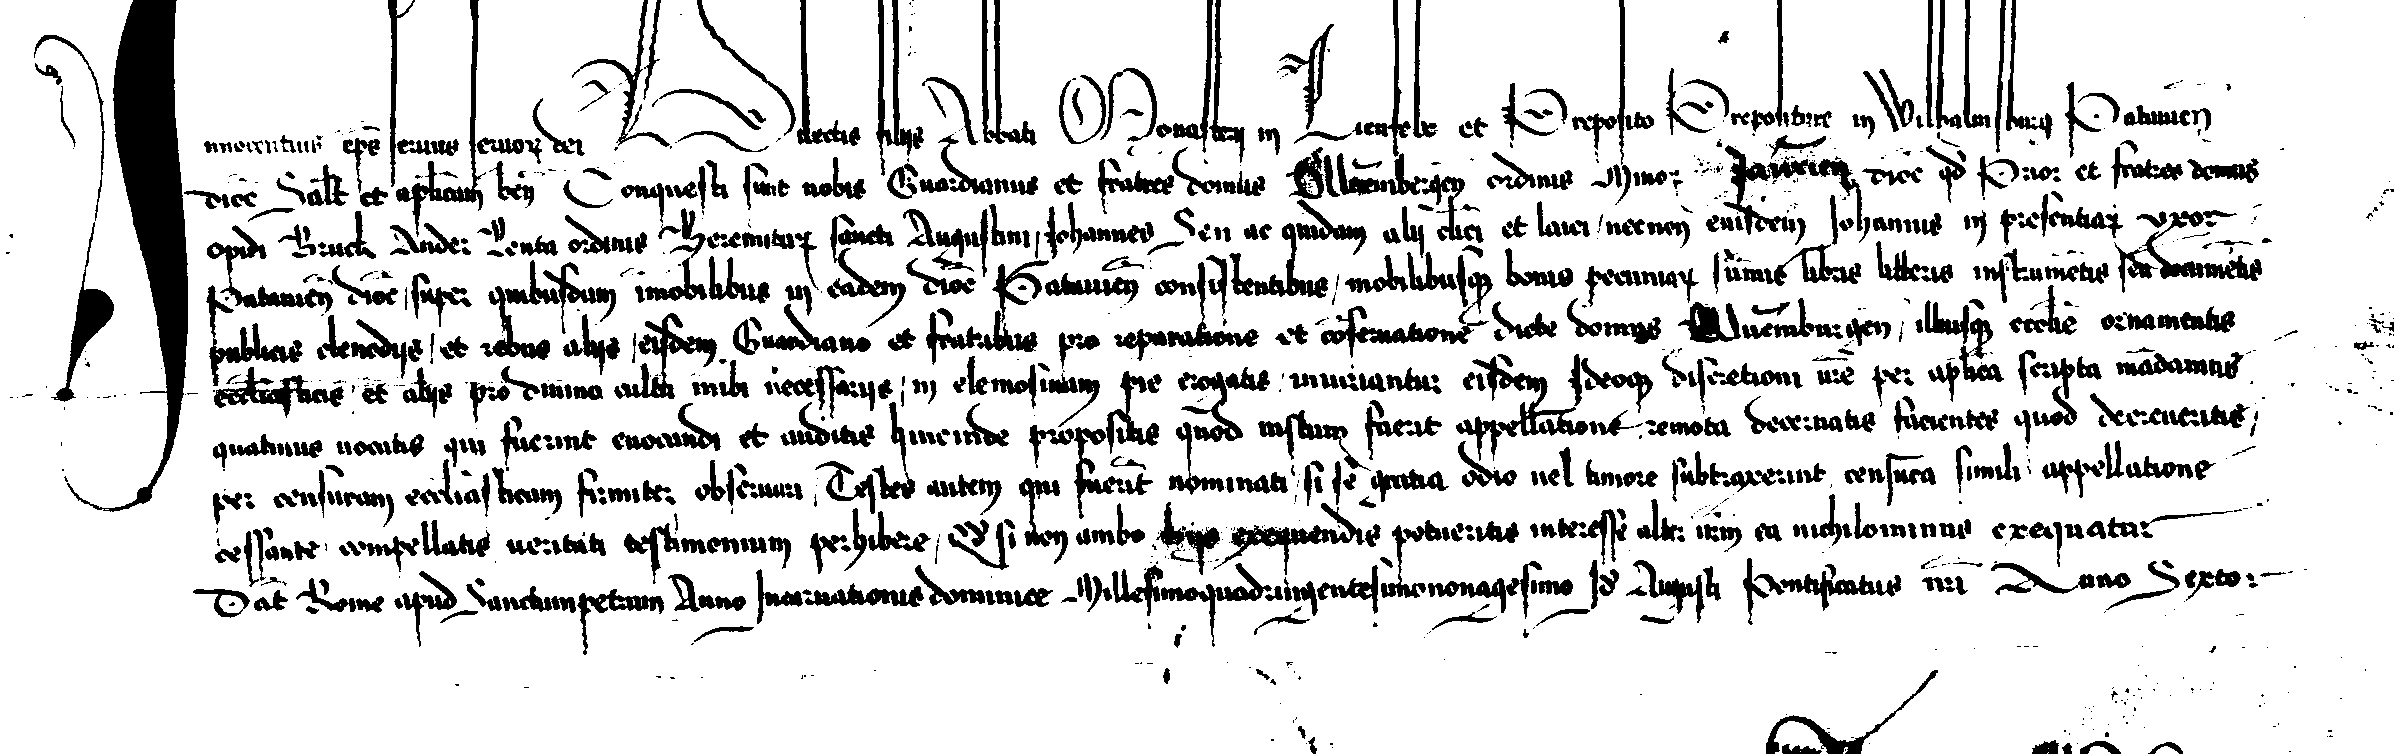 nnocentius ep̄s seruus seruoꝝ dei Dilectis filijs Abbati Monasterij in Lienfelt et Preposito Prepositure in Wilhalmsburg Patauieñ
dioc̄ Saɫt et apl̄icam beñ Conquesti sunt nobis Guardianus et fratres domus ordinis Minoꝝ Jaurieñ dioc̄ qd̄ Prior et fratres domus
opidi Bruck Ander Leyta ordinis Heremitaꝝ sancti Augustini, Johannes Sen ac quidam alij cl̄ici et laici, necnoñ eiusdem Johannis in presentiaꝝ vxor
Patauieñ dioc̄, super quibusdam īmobilibus in eadem dioc̄ Patauieñ consistentibus, mobilibusqȝ bonis pecuniaꝝ sūmis libris litteris instrumētis seu documētis
publicis clenodijs, et rebus alijs, eisdem Guardiano et fratribus pro reparatione et cōseruatione dicte domus illiusqȝ eccl̄ie ornamentis
eccl̄iasticis, et alijs pro diuino cultu inibi necessarijs, in elemosinam pie erogatis, iniuriantur eisdem Ideoqȝ discretioni vr̄e per apl̄ica scripta mādamus
quatinus uocatis qui fuerint euocandi et auditis hincinde propositis quod iustum fuerit appellatione remota decernatis facientes quod decreueritis,
per censuram eccl̄iasticam firmiter obseruari, Testes autem qui fuerīt nominati si se gratia odio uel timore subtraxerint censura simili appellatione
cessante compellatis ueritati testimonium perhibere, Qd̄ si non ambo hijs exequendis potueritis interesse alter vr̄m ea nichilominus exequatur
Dat̄ Rome apud Sanctumpetrum Anno Incarnationis dominice Millesimoquadringentesimononagesimo Id̄ Augusti Pontificatus nr̄i Anno Sexto